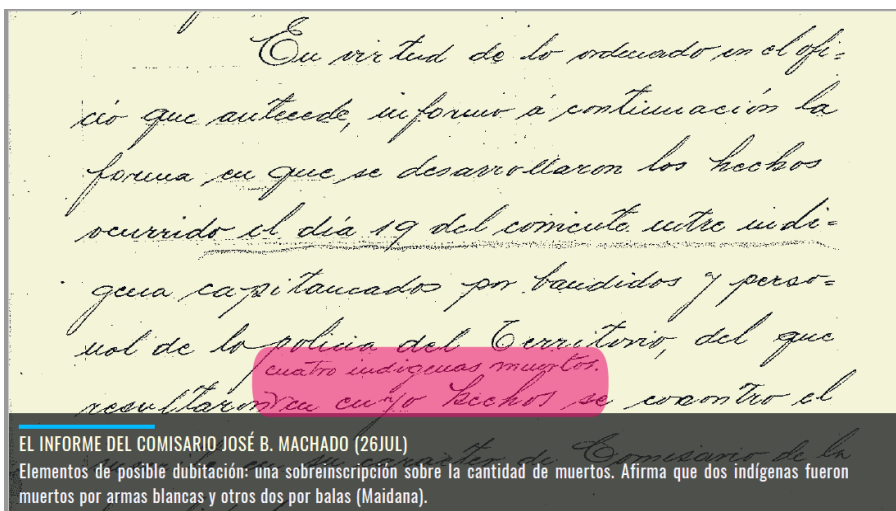 En virtud de lo ordenado en el ofi=
cio que antecede, informo á continuación la
forma en que se desarrollaron los hechos
ocurrido el día 19 del corriente entre indi=
gena capitaneados por bandidos y perso=
nal de la policia del Territorio, del que
cuatro indigenas muertos.
resultaron en cuyo hechos se encontro el
EL INFORME DEL COMISARIO JOSÉ B. MACHADO (26JUL)
en su caracter de Comisario de la
Elementos de posible dubitación: una sobreinscripción sobre la cantidad de muertos. Afirma que dos indígenas fueron
muertos por armas blancas y otros dos por balas (Maidana).